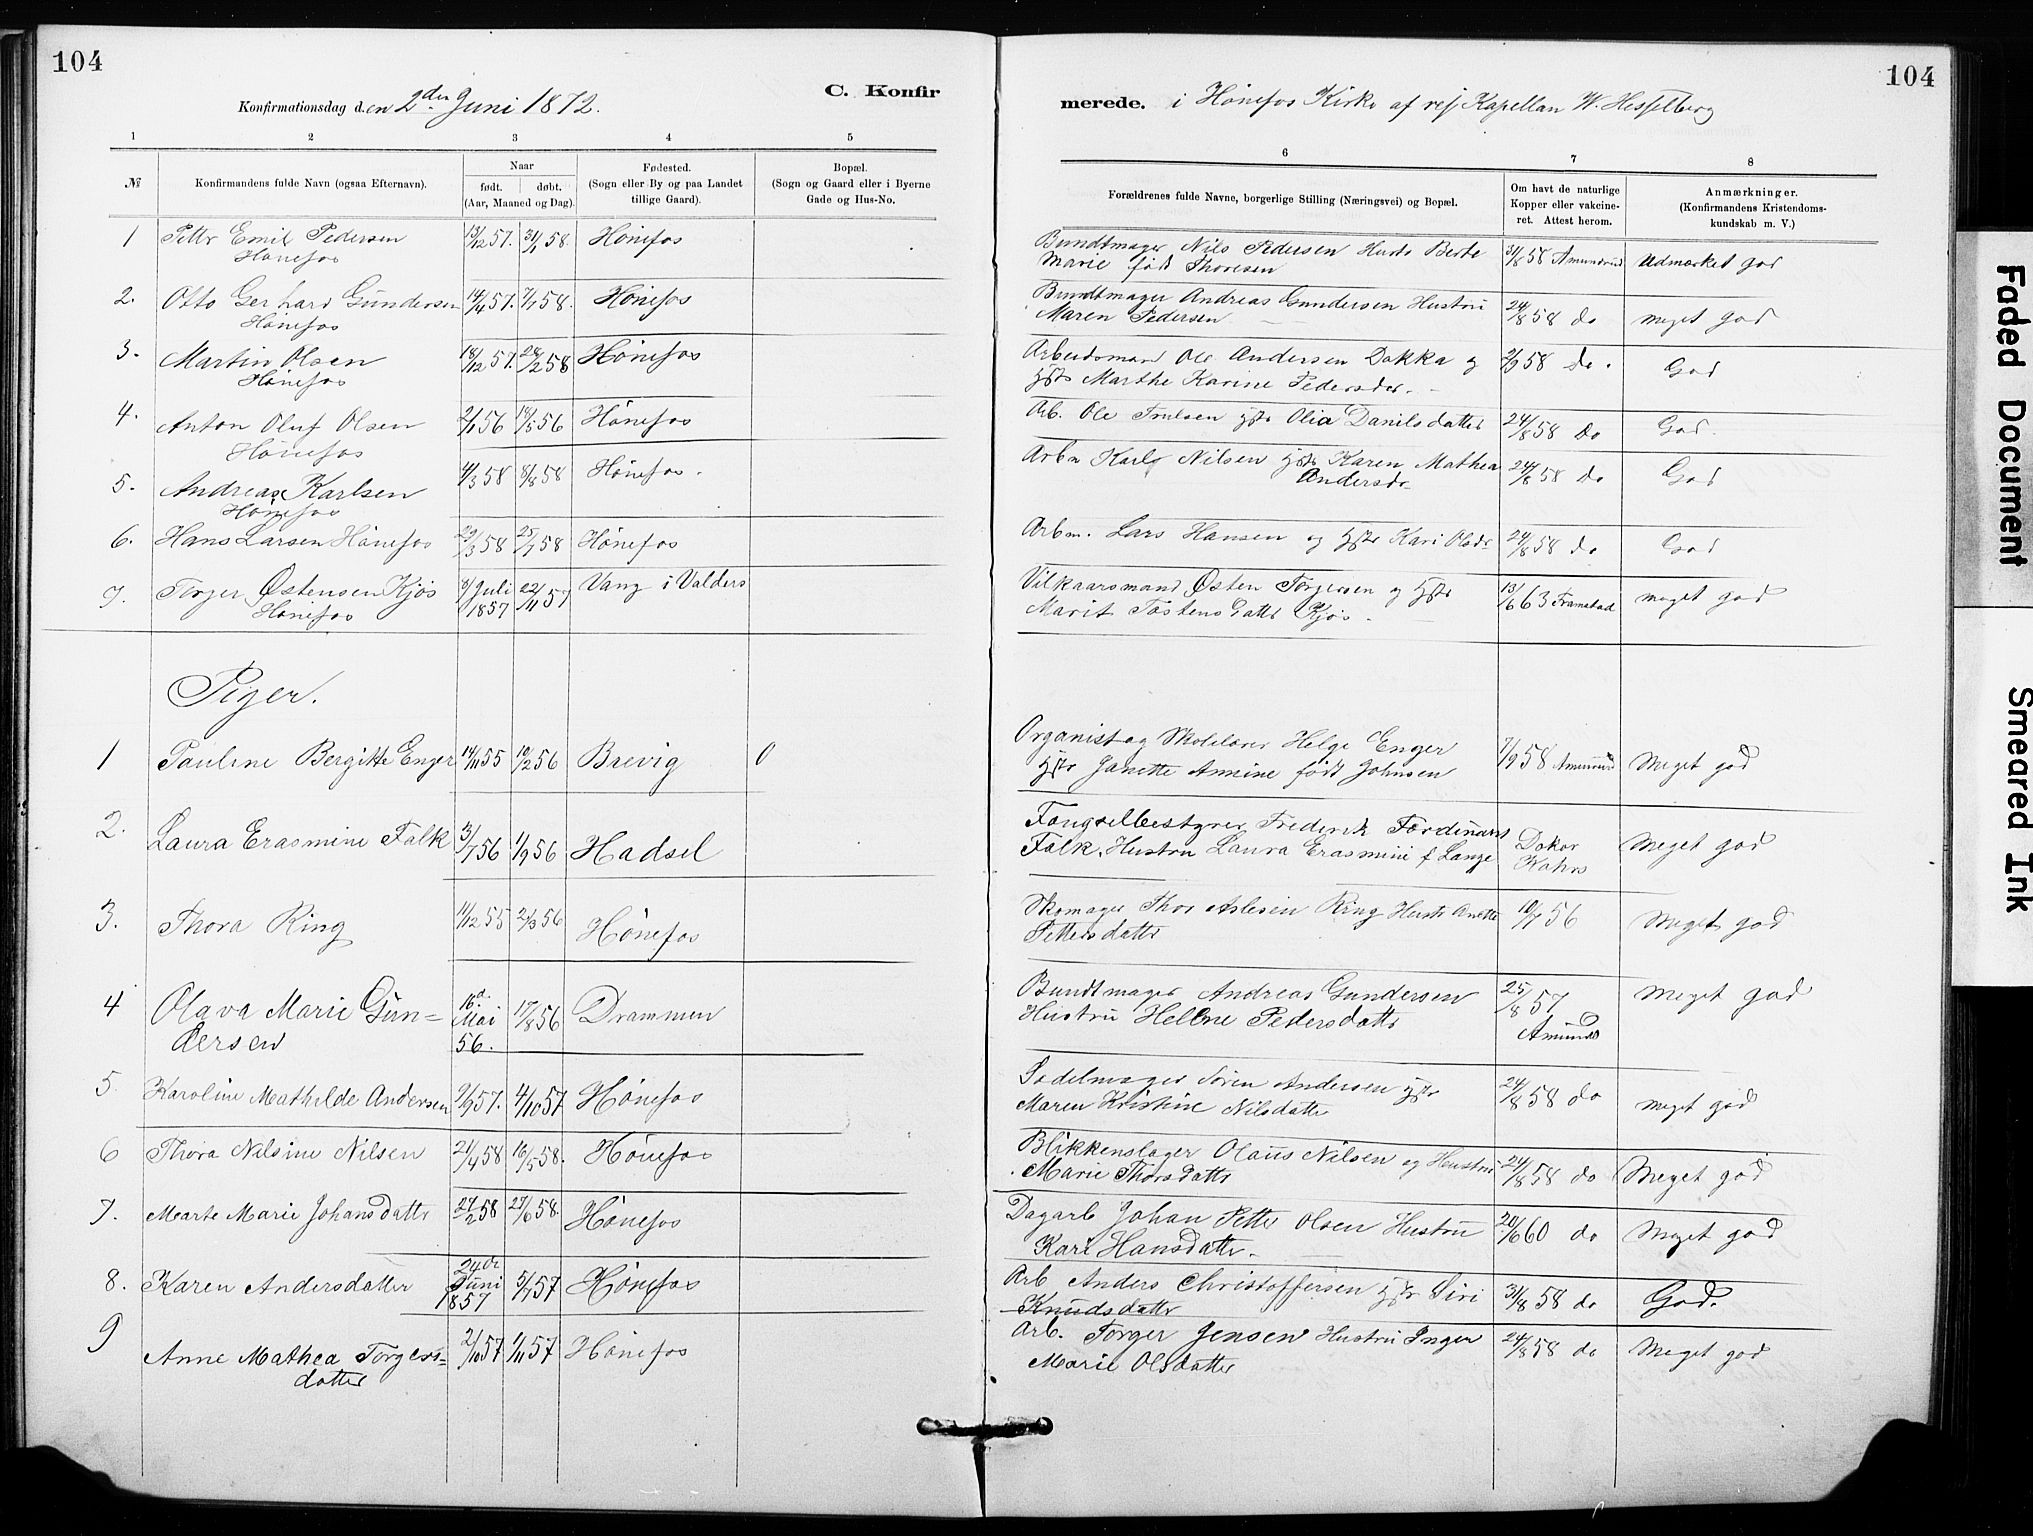 104
C. Konfir
Konfirmationsdag d.en 2den Juni 1872.
1 2 3 4 5
№ Konfirmandens fulde Navn (ogsaa Efternavn). Naar født. døbt. (Aar, Maaned og Dag). Fødested. (Sogn eller By og paa Landet tillige Gaard). Bopæl. (Sogn og Gaard eller i Byerne Gade og Hus-No.
104
merede. i Hønefos Kirke af Kapellan W. Hesselberg
6 7 8
Forældrenes fulde Navne, borgerlige Stilling (Næringsvei) og Bopæl. Om havt de naturlige Kopper eller vakcineret. Attest herom. Anmærkninger. (Konfirmandens Kristendomskundskab m. V.)
1 Petter Emil Pedersen 13/12 57. 31/1 58. Hønefos Bundtmager Nils Pedersen Hustr Berte 31/8 58 Amundrud Udmærket god
Hønefos Marie født Thoresen
2. Otto Gerhard Gundersen 14/4 57. 7/1 58. Hønefos Bundtmager Andreas Gundersen Hustru 24/8 58 do meget god
Hønefos Maren Pedersen
3. Martin Olsen 18/12 57. 28/2 58 Hønefos Arbeidsmand Ole Andersen Dokka og 2/9 58 do. God
Hønefos Marthe Karine Pedersdr.
4. Anton Oluf Olsen 2/1 56 18/5 56 Hønefos Arb. Ole Olia Danilsdatter 24/8 58 Do God.
Hønefos
5. Andreas Karlsen 4/3 58 8/8 58 Hønefos. Arbm Karl Nilsen Karen Mathea 24/8 58 do God
Hønefos Andersdr
6. Hans Larsen Hønefos 29/3 58 25/7 58 Hønefos Arbm. Lars Hansen og Kari Olsdr 24/8 58 do God
7. Torger Østensen Kjøs 8/Juli 1857 22/11 57 Vang i Valders Vilkaarsmand Østen Torgersen og 13/6 63 Framstad meget god
Hønefos Marit Tostensdatter Kjøs.
Piger.
1 Pauline Bergitte Enger 14/11 55 10/2 56 Brevig 0 Organist og Skolelærer Helge Enger 7/9 58 Amundrud Meget god
Janette Annine født Johnsen
2. Laura Erasmine Falk 3/7 56 1/9 56 Hadsel Fængselbestyrer Frederik Ferdinant Doktor Meget god
Falk. Hustru Laura Erasmine f Lange Kahrs
3. Thora Ring 11/12 55 2/3 56 Hønefos Skomager Thor Aslesen Ring Hustr Anette 10/7 56 Meget god
Pettersdatter
4 Olava Marie Gun= 16d. Mai 56. 17/8 56 Drammen Bundtmager Andreas Gundersen 25/8 57 Meget god
dersen Hustru Hellene Pedersdatter Amundrd
5. Karoline Mathilde Andersen 9/9 57. 4/10 57 Hønefos Sadelmager Søren Andersen 24/8 58 do meget god
Maren Kristine Nilsdatter
6 Thora Nilsine Nilsen 21/4 58 16/5 58. Hønefos Blikkenslager Olaus Nilsen og Hustru 24/8 58 do Meget god
Marie Thorsdatter
7. Marte Marie Johansdatter 24/2 58 27/6 58. Hønefos Dagarb Johan Petter Olsen Hustru 20/6 60 do Meget god
Kari Hansdatter.
8. Karen Andersdatter 24de Juni 1857 5/7 57 Hønefos Arb Anders Christoffersen Siri 31/8 58 do God.
Knudsdatter
9 Anne Mathea Torgers= 2/10 57 1/11 57 Hønefos Arb. Torger Jensen Hustru Inger 24/8 58 do Meget god
datter Marie Olsdatter
Faded Document
Smeared Ink